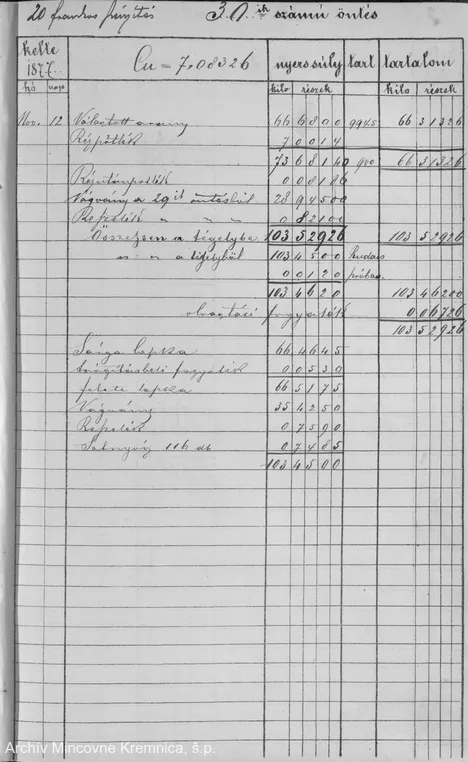 20 frankos pénzítés 30ik számú öntés
kelte 1877. Cu = 7,08326 nyerssúly tart tartalom
hó nap kilo részek kilo részek
Nov. 12 Választott arany 66 6800 9945 66 31326
Rézpótlék 7 0014
73 68140 900 66 31326
0 08186
Vágvány a 29ik öntésből 28 94500
Reszelék " " " 0 82100
Összesen a tégelybe 103 52926 103 52926
" " a tégelyből 103 4500 kudais
0 0120 próbára
103 4620 103 46200
olvasztási fogyaték 0 06726
103 52926
Sárga lapka 66 4645
0 0530
fekete lapka 66 5175
Vágvány 35 4250
Reszelék 0 7590
116 db 0 7485
103 4500
Archív Mincovne Kremnica, š.p.